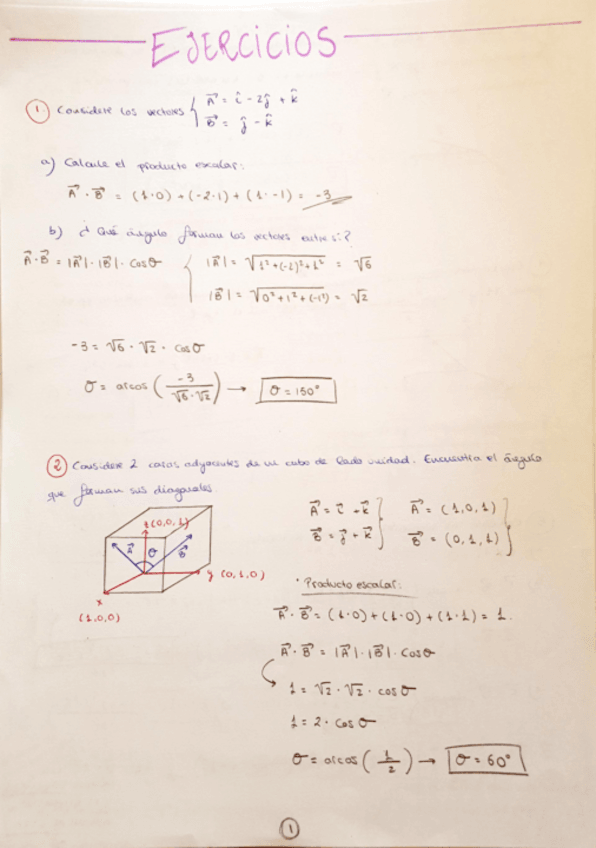 EJERCICIOS
1. Considere los vectores { A⃗ = î - 2ĵ + k̂
B⃗ = ĵ - k̂
a) Calcule el producto escalar:
A⃗ · B⃗ = (1·0) + (-2·1) + (1·-1) = -3
b) ¿Qué ángulo forman los vectores entre sí?
A⃗·B⃗ = |A⃗|·|B⃗|·cosθ { |A⃗| = √(1²+(-2)²+1²) = √6
|B⃗| = √(0²+1²+(-1²)) = √2
-3 = √6 · √2 · cosθ
θ = arcos (-3/(√6·√2)) → θ = 150°
2 Considere 2 caras adyacentes de un cubo de lado unidad. Encuentra el ángulo
que forman sus diagonales.
z(0,0,1)
A⃗ θ B⃗
y (0,1,0)
x
(1,0,0)
A⃗ = î + k̂ } A⃗ = (1,0,1)
B⃗ = ĵ + k̂ } B⃗ = (0,1,1)
· Producto escalar:
A⃗·B⃗ = (1·0) + (1·0) + (1·1) = 1.
A⃗·B⃗ = |A⃗|·|B⃗|·cosθ
1 = √2 · √2 · cosθ
1 = 2 · cosθ
θ = arcos (1/2) → θ = 60°
1